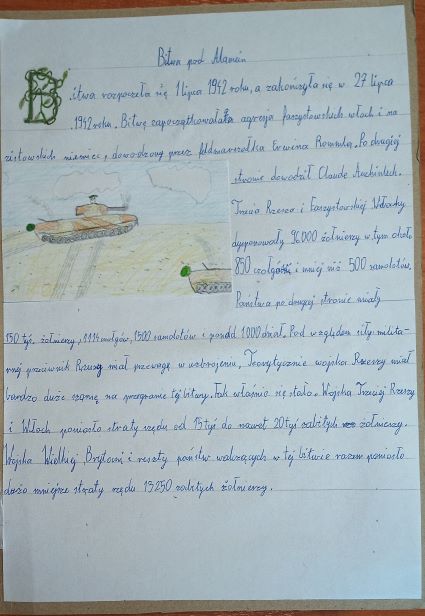 Bitwa pod Alamein
Bitwa rozpoczęła się 1 lipca 1942 roku, a zakończyła się w 27 lipca
1942 roku. Bitwę zapoczątkowała agresja faszystowskich włoch i na
zistowskich niemiec, dowodzony przez feldmarszałka Erwina Rommla. Po drugiej
stronie dowodził Claude Auchinleck.
Trzecia Rzesza i Faszystowskie Włochy
dysponowały 96000 żołnierzy w tym około
850 czołgów i mniej niż 500 samolotów.
Państwa po drugiej stronie miały
150 tyś. żołnierzy, 1114 czołgów, 1500 samolotów i ponad 1000 dział. Pod względem siły milita-
rnej przeciwnik Rzeszy miał przewagę w uzbrojeniu. Teorytycznie wojska Rzeszy miał
bardzo duże szansę na przegranie tej bitwy. Tak właśnie się stało. Wojska Trzeciej Rzeszy
i Włoch poniosło straty rzędu od 15 tyś do nawet 20 tyś zabitych żołnierzy.
Wojska Wielkiej Brytani i reszty państw walczących w tej bitwie razem poniosło
dużo mniejsze straty rzędu 13250 zabitych żołnierzy.